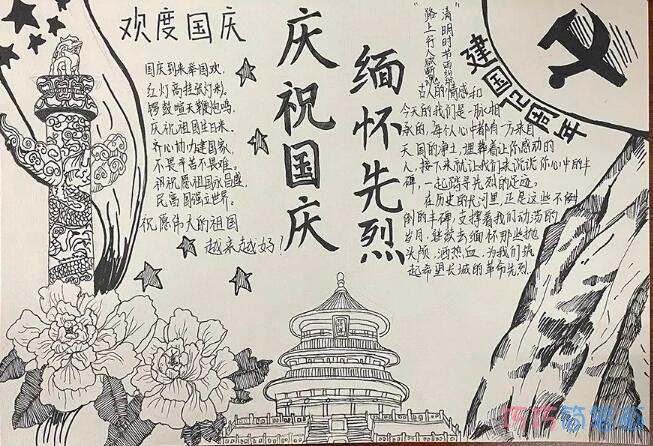 欢度国庆
国庆到来举国欢，
红灯高挂张灯彩。
锣鼓喧天鞭炮鸣，
庆祝祖国生日来。
齐心协力建国家，
不畏辛苦不畏难。
祝愿祖国永昌盛，
民富国强立世界。
祝愿伟大的祖国
越来越好！
庆祝国庆
缅怀先烈
"清明时节雨纷纷
路上行人欲断魂"
古人的情感和
今天的我们是一脉相
承的，每个人心中都有一方来自
天国的净土，埋葬着让你感动的
人，接下来就让我们来说说你心中的丰
碑，一起踏寻先烈的足迹。
在历史的长河里，正是这些不倒
的丰碑，支撑着我们动荡的
岁月，
缅怀那些抛
头颅，洒热血，为我们筑
起希望长城的革命先烈。
建国70周年
巧巧简笔画